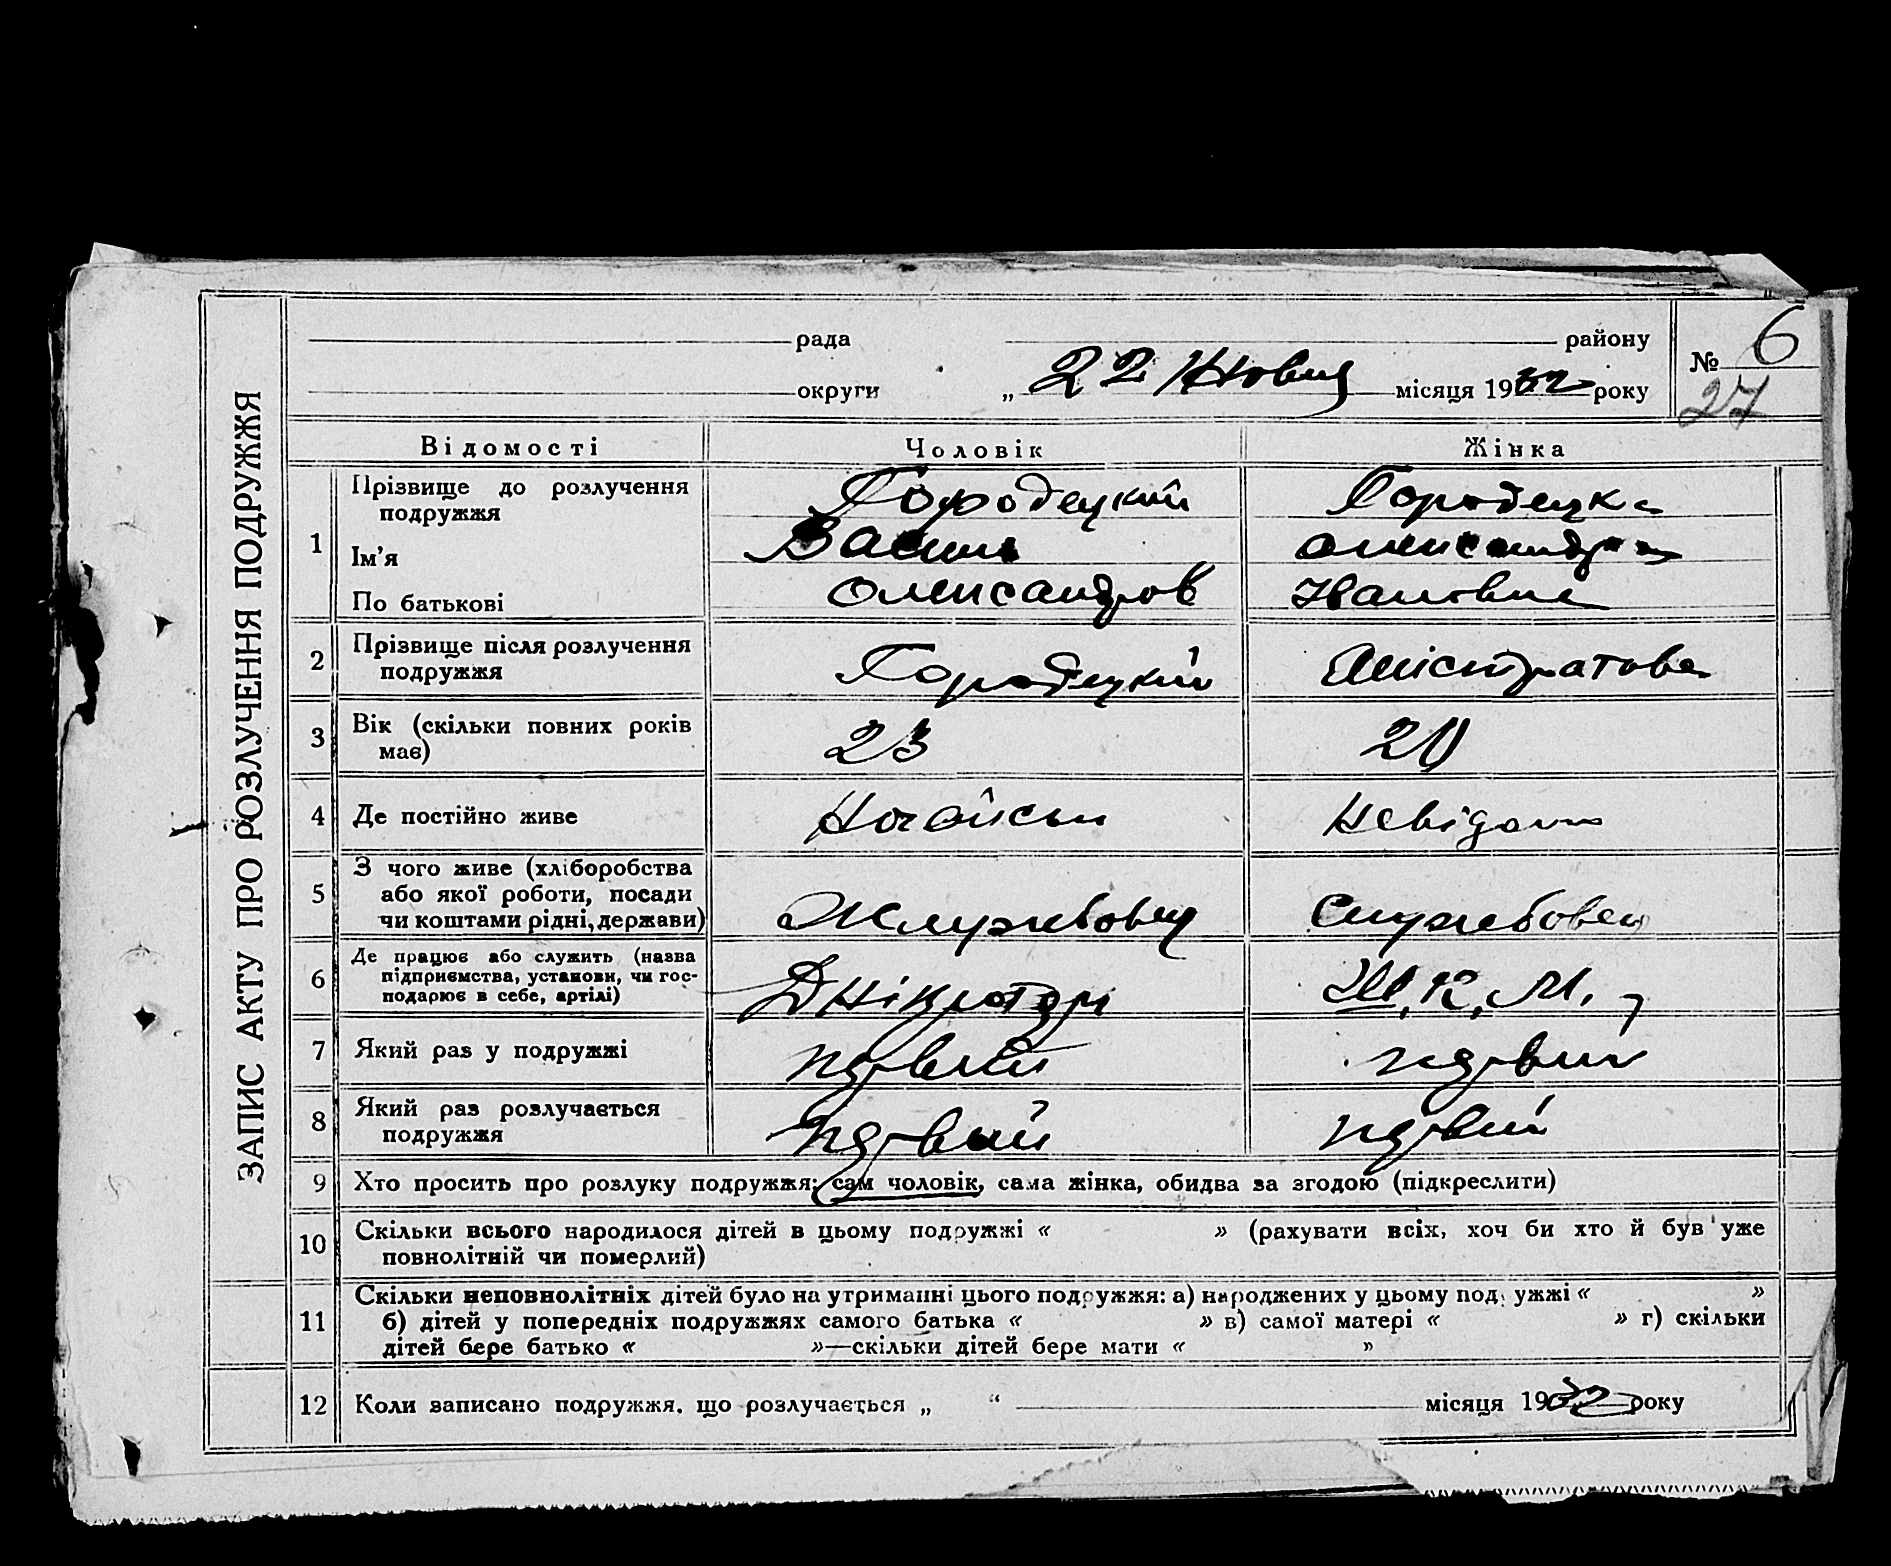 ЗАПИС АКТУ ПРО РОЗЛУЧЕННЯ ПОДРУЖЖЯ
рада району
округи „ 22 Жовтня місяця 1932 року
№ 6
27
Відомості Чоловік Жінка
1 Прізвище до розлучення подружжя Городецкий Городецка
Ім'я Василь Олександра
По батькові Олександров Ивановна
2 Прізвище після розлучення подружжя Городецкий
3 Вік (скільки повних років має) 23 20
4 Де постійно живе Невідомо
5 З чого живе (хліборобства або якої роботи, посади чи коштами рідні, держави) Службовец
6 Де працює або служить (назва підприємства, установи, чи господарює в себе, артілі) Ш.К.М.
7 Який раз у подружжі первий первий
8 Який раз розлучається подружжя первий первий
9 Хто просить про розлуку подружжя: сам чоловік, сама жінка, обидва за згодою (підкреслити)
10 Скільки всього народилося дітей в цьому подружжі « » (рахувати всіх, хоч би хто й був уже
повнолітній чи померлий)
11 Скільки неповнолітніх дітей було на утриманні цього подружжя: а) народжених у цьому подружжі « »
б) дітей у попередніх подружжях самого батька « » в) самої матері « » г) скільки
дітей бере батько « »—скільки дітей бере мати « »
12 Коли записано подружжя, що розлучається „ “ місяця 1932 року